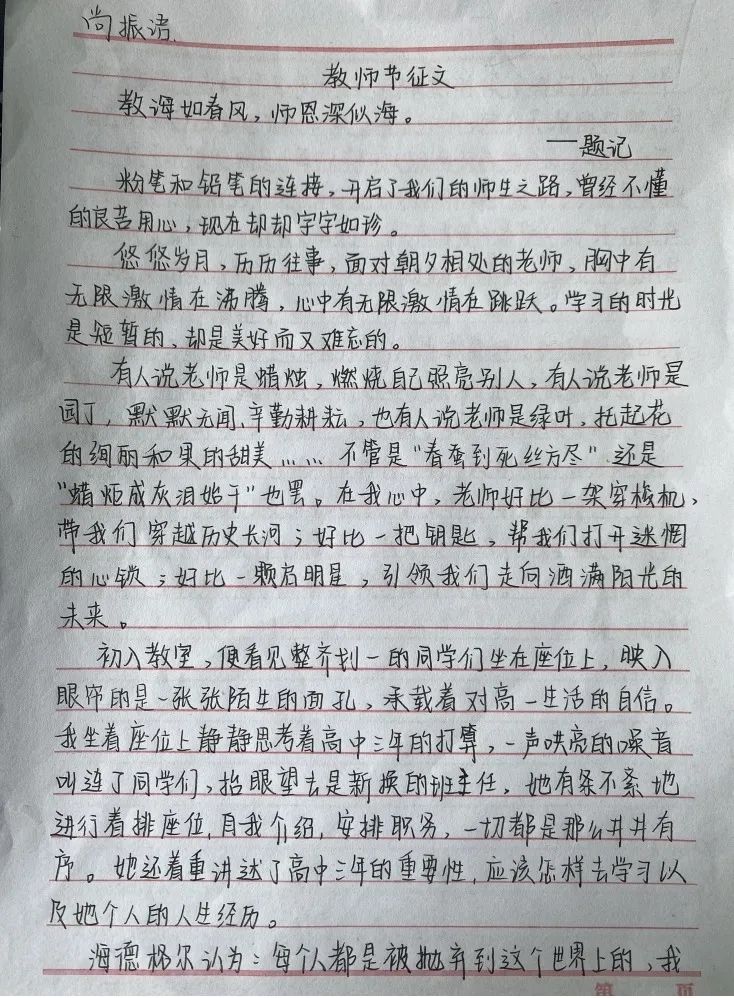 尚振语.
教师节征文
教诲如春风，师恩深似海。
——题记
粉笔和铅笔的连接，开启了我们的师生之路，曾经不懂
的良苦用心，现在却却字字如珍。
悠悠岁月，历历往事，面对朝夕相处的老师，胸中有
无限激情在沸腾，心中有无限激情在跳跃。学习的时光
是短暂的，却是美好而又难忘的。
有人说老师是蜡烛，燃烧自己照亮别人，有人说老师是
园丁，默默无闻、辛勤耕耘，也有人说老师是绿叶，托起花
的绚丽和果的甜美…… 不管是“春蚕到死丝方尽”还是
“蜡炬成灰泪始干”也罢。在我心中，老师好比一架穿梭机，
带我们穿越历史长河；好比一把钥匙，帮我们打开迷惘
的心锁；好比一颗启明星，引领我们走向洒满阳光的
未来。
初入教室，便看见整齐划一的同学们坐在座位上，映入
眼帘的是一张张陌生的面孔，承载着对高一生活的自信。
我坐着座位上静静思考着高中三年的打算，一声哄亮的嗓音
叫连了同学们，抬眼望去是新换的班主任，她有条不紊地
进行着排座位，自我介绍，安排职务，一切都是那么井井有
序。她还着重讲述了高中三年的重要性，应该怎样去学习以
及她个人的人生经历。
海德格尔认为：每个人都是被抛弃到这个世界上的，我
第 页